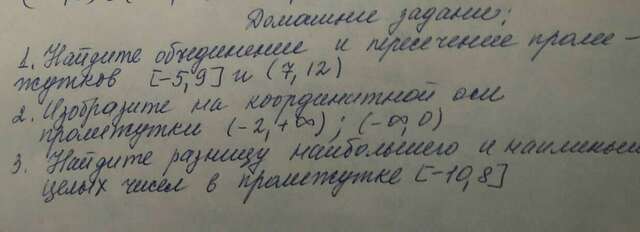 Домашние задание:
1. Найдите объединение и пересечение проме-
жутков [-5,9] и (7,12)
2. Изобразите на координатной оси
промежутки (-2,+∞); (-∞,0)
3. Найдите разницу наибольшего и наименьш
целых чисел в промежутке [-10,8]